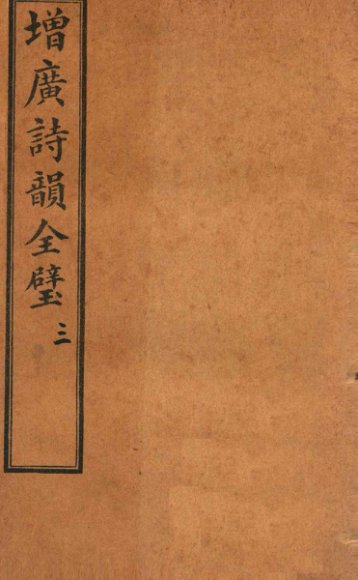 增廣詩韻全璧 三